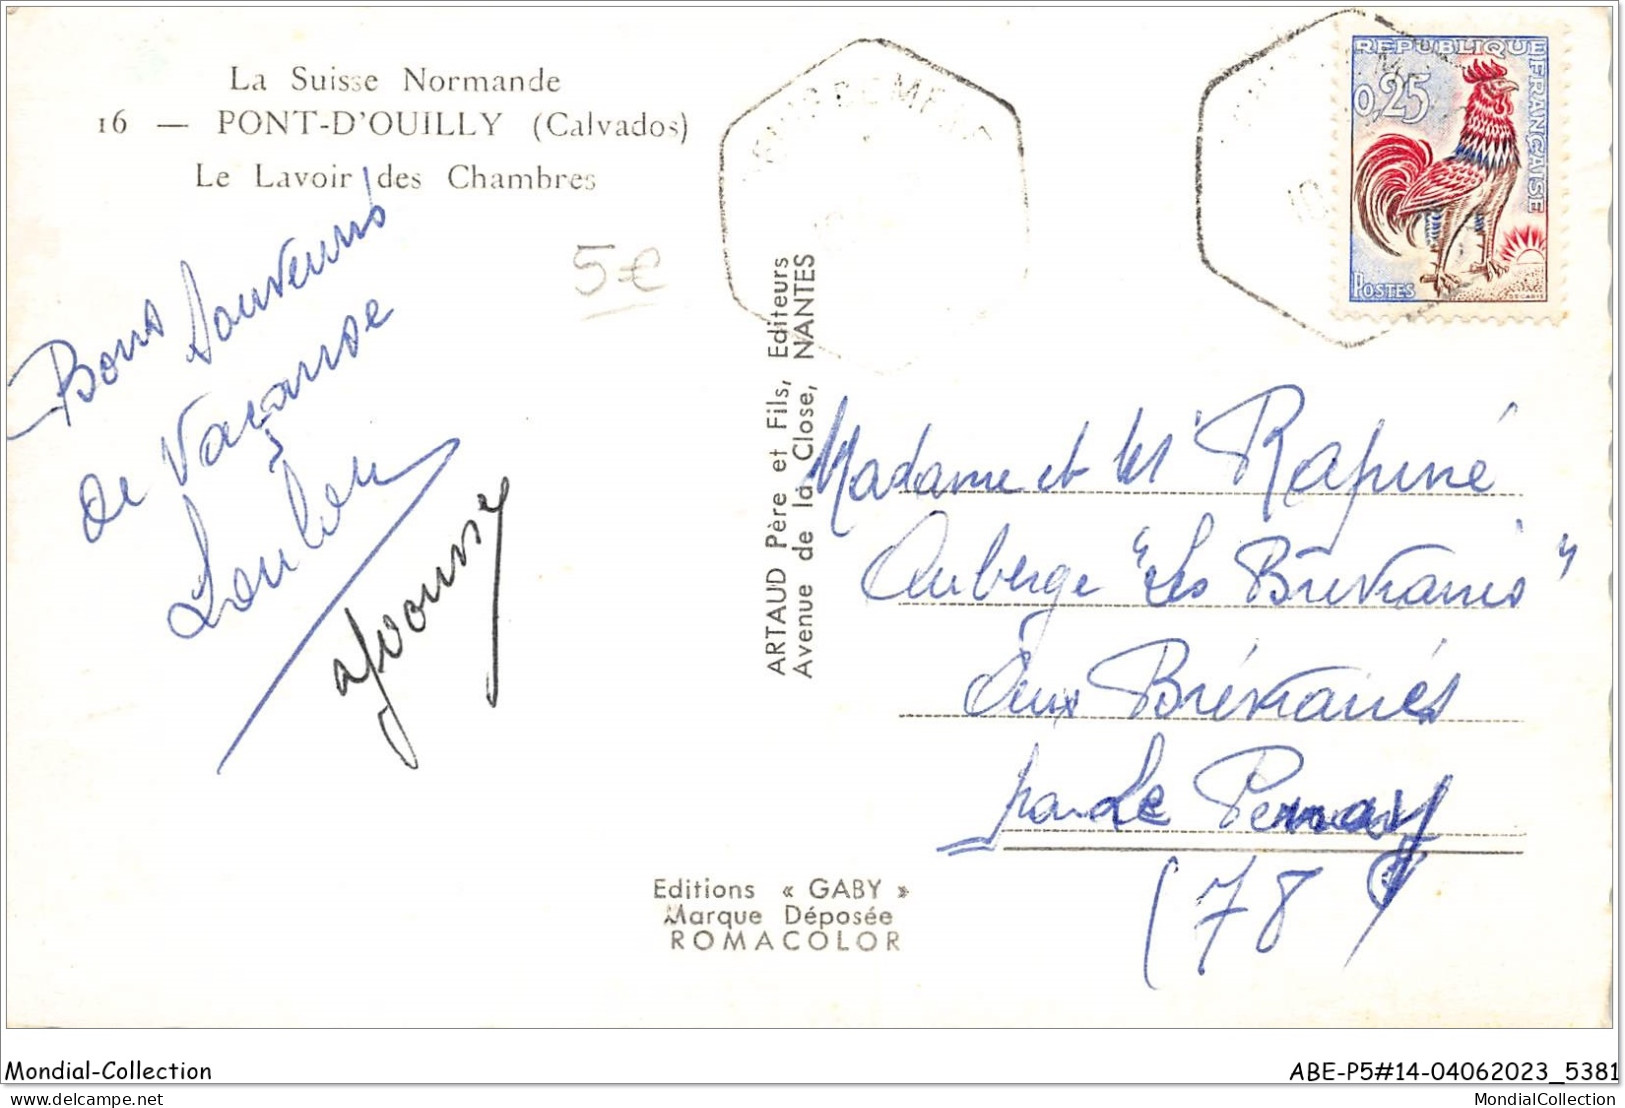 La Suisse Normande
16 — PONT-D'OUILLY (Calvados)
Le Lavoir des Chambres
5€
Bons Souvenirs
de Vacanse
ARTAUD Père et Fils, Editeurs
Avenue de la Close, NANTES
REPUBLIQUE FRANÇAISE
0,25
POSTES
DECARIS
10
Madame et Mr Rapiné
Auberge "Les Brévianes"
aux Bréviaires
par Le Perray
(78)
Editions « GABY »
Marque Déposée
ROMACOLOR
Mondial-Collection
ABE-P5#14-04062023_5381
delcampe.net
MondialCollection